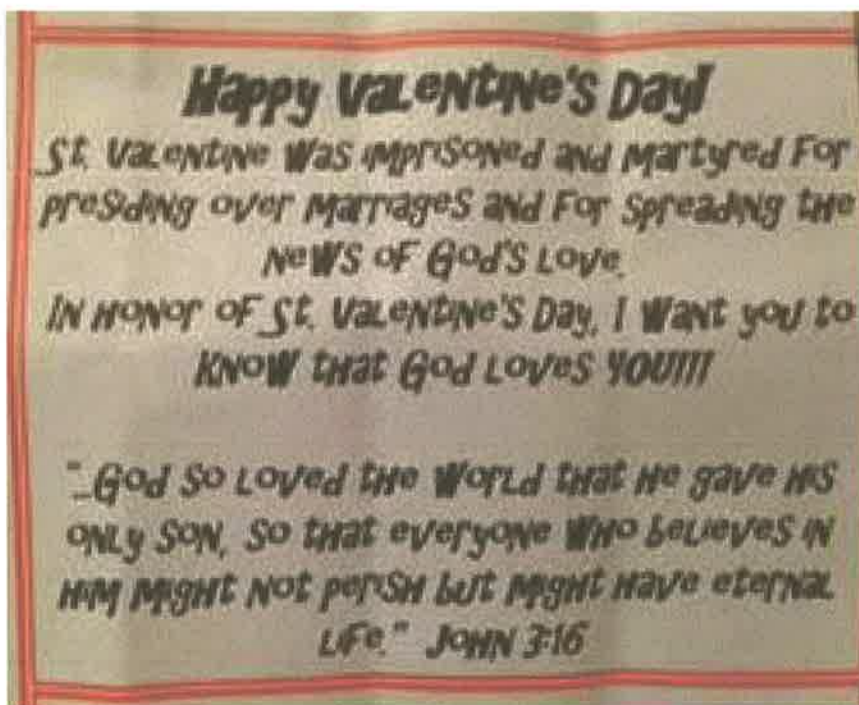 Happy Valentine's Day!
St. Valentine was imprisoned and martyred for
presiding over marriages and for spreading the
news of God's love.
In honor of St. Valentine's Day, I want you to
know that God loves YOU!!!
"...God so loved the world that He gave His
only Son, so that everyone who believes in
Him might not perish but might have eternal
life." John 3:16